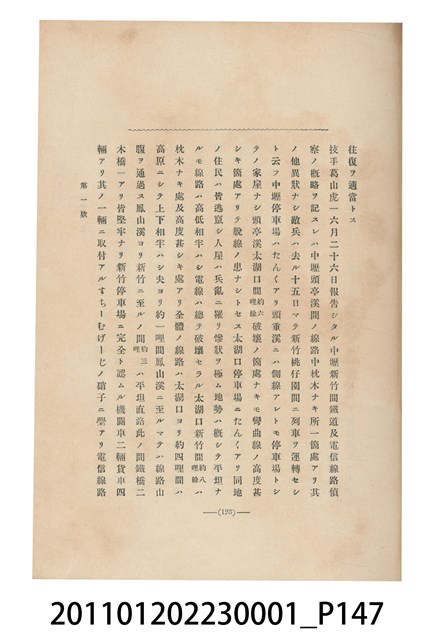 往復ヲ適當トス
技手葛山虎一六月二十六日報告シタル中壢新竹間鐵道及電信線路偵
察ノ概略ヲ記スレハ中壢頭亭溪間ノ線路中枕木ナキ所一箇處アリ其
ノ他異狀ナシ敵兵ハ去ル十五日マテ新竹桃仔園間ニ列車ヲ運轉セシ
ト云フ中壢停車場ハたんくアリ頭重溪ニハ側線アレトモ停車場トシ
テノ家屋ナシ頭亭溪太湖口間約六哩餘破壞ノ箇處ナキモ彎曲線ノ高度甚
シキ箇處アリテ脫線ノ患ナシトセス太湖口停車場ニたんくアリ同地
ノ住民ハ皆逃竄シ人屋ハ兵亂ニ罹リ慘狀ヲ極ム地勢ハ概シテ平坦ナ
ルモ線路ハ高低相半ハシ電線ハ總テ破壞セラル太湖口新竹間約八哩餘ハ
枕木ナキ處及高度甚シキ處アリ全體ノ線路ハ太湖口ヨリ約四哩間ハ
高原ニシテ上下相半ハシ夫ヨリ約一哩間鳳山溪ニ至ルマテハ線路山
腹ヲ通過ス鳳山溪ヨリ新竹ニ至ルノ間約三哩ハ平坦直路此ノ間鐵橋二
木橋一アリ皆堅牢ナリ新竹停車場ニ完全ト認ムル機關車二輛貨車四
輛アリ其ノ一輛ニ取付アルすちーむげーじノ硝子ニ罅アリ電信線路
第一號
(123)
201101202230001_P147